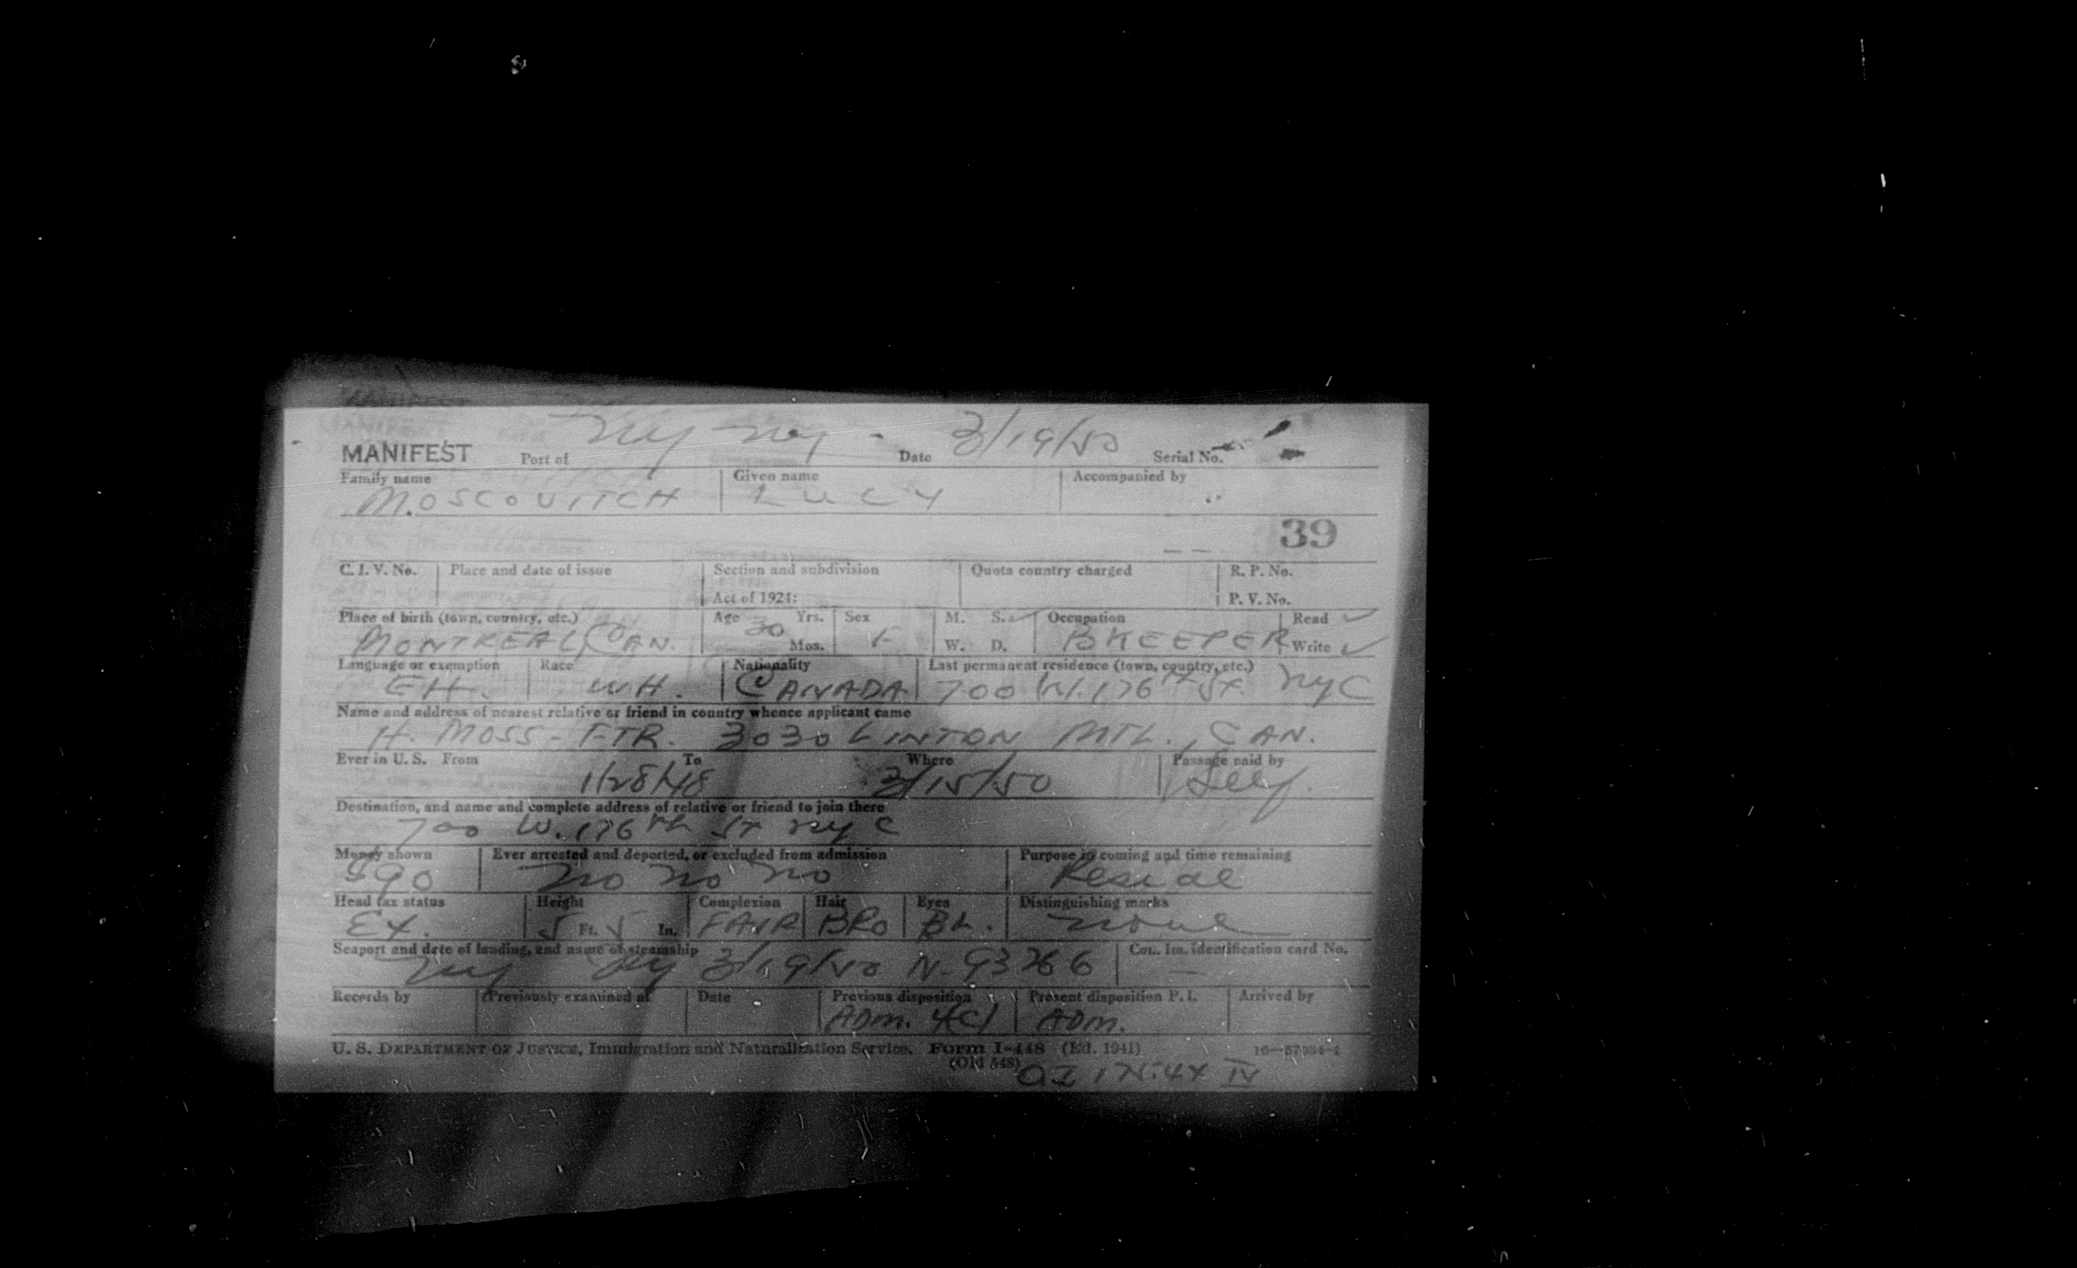 MANIFEST Port of NY NY - Date 3/19/50 Serial No.
Family name Given name Accompanied by
MOSCOVITCH LUCY
39
C. I. V. No. Place and date of issue Section and subdivision Quota country charged R. P. No.
Act of 1924: P. V. No.
Place of birth (town, country, etc.) Age 30 Yrs. Sex M. S. ✓ Occupation Read ✓
MONTREAL, CAN. Mos. F W. D. BKEEPER Write ✓
Language or exemption Race Nationality Last permanent residence (town, country, etc.)
EH. WH. CANADA 700 W. 176th St. NYC
Name and address of nearest relative or friend in country whence applicant came
H. MOSS - FTR. 3030 LINTON MTL., CAN.
Ever in U. S. From To Where Passage paid by
1/28/48 3/15/50 Self.
Destination, and name and complete address of relative or friend to join there
700 W. 176th St NYC
Money shown Ever arrested and deported, or excluded from admission Purpose in coming and time remaining
$90 no no no Reside
Head tax status Height Complexion Hair Eyes Distinguishing marks
EX. 5 Ft. 5 In. FAIR BRO BL. none
Seaport and date of landing, and name of steamship Cou. Im. identification card No.
NY NY 3/19/50 N-93766 —
Records by Previously examined at Date Previous disposition Present disposition P. I. Arrived by
ADM. 4(C) ADM.
U. S. DEPARTMENT OF JUSTICE, Immigration and Naturalization Service. Form I-448 (Ed. 1941)
(Old 548)